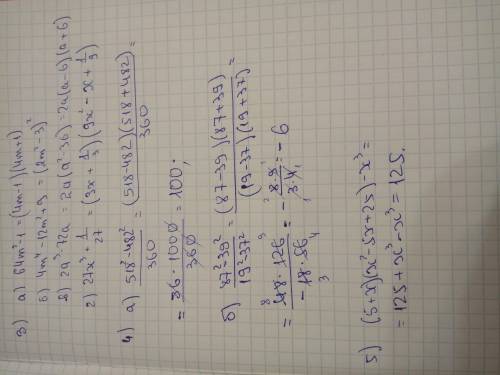 3) а) 64m²-1 = (4m-1)(4m+1)
б) 4m⁴-12m²+9 = (2m²-3)²
в) 2a³-72a = 2a(a²-36) = 2a(a-6)(a+6)
г) 27x³ + 1/27 = (3x + 1/3)(9x² - x + 1/9)
4) а) (518²-482²)/360 = ((518-482)(518+482))/360 =
= (36 · 1000)/360 = 100;
б) (87²-39²)/(19²-37²) = ((87-39)(87+39))/((19-37)(19+37)) =
= (48 · 126)/(-18 · 56) = - (8·9)/(3·4) = - 6
5) (5+x)(x²-5x+25)-x³ =
= 125+x³-x³ = 125.